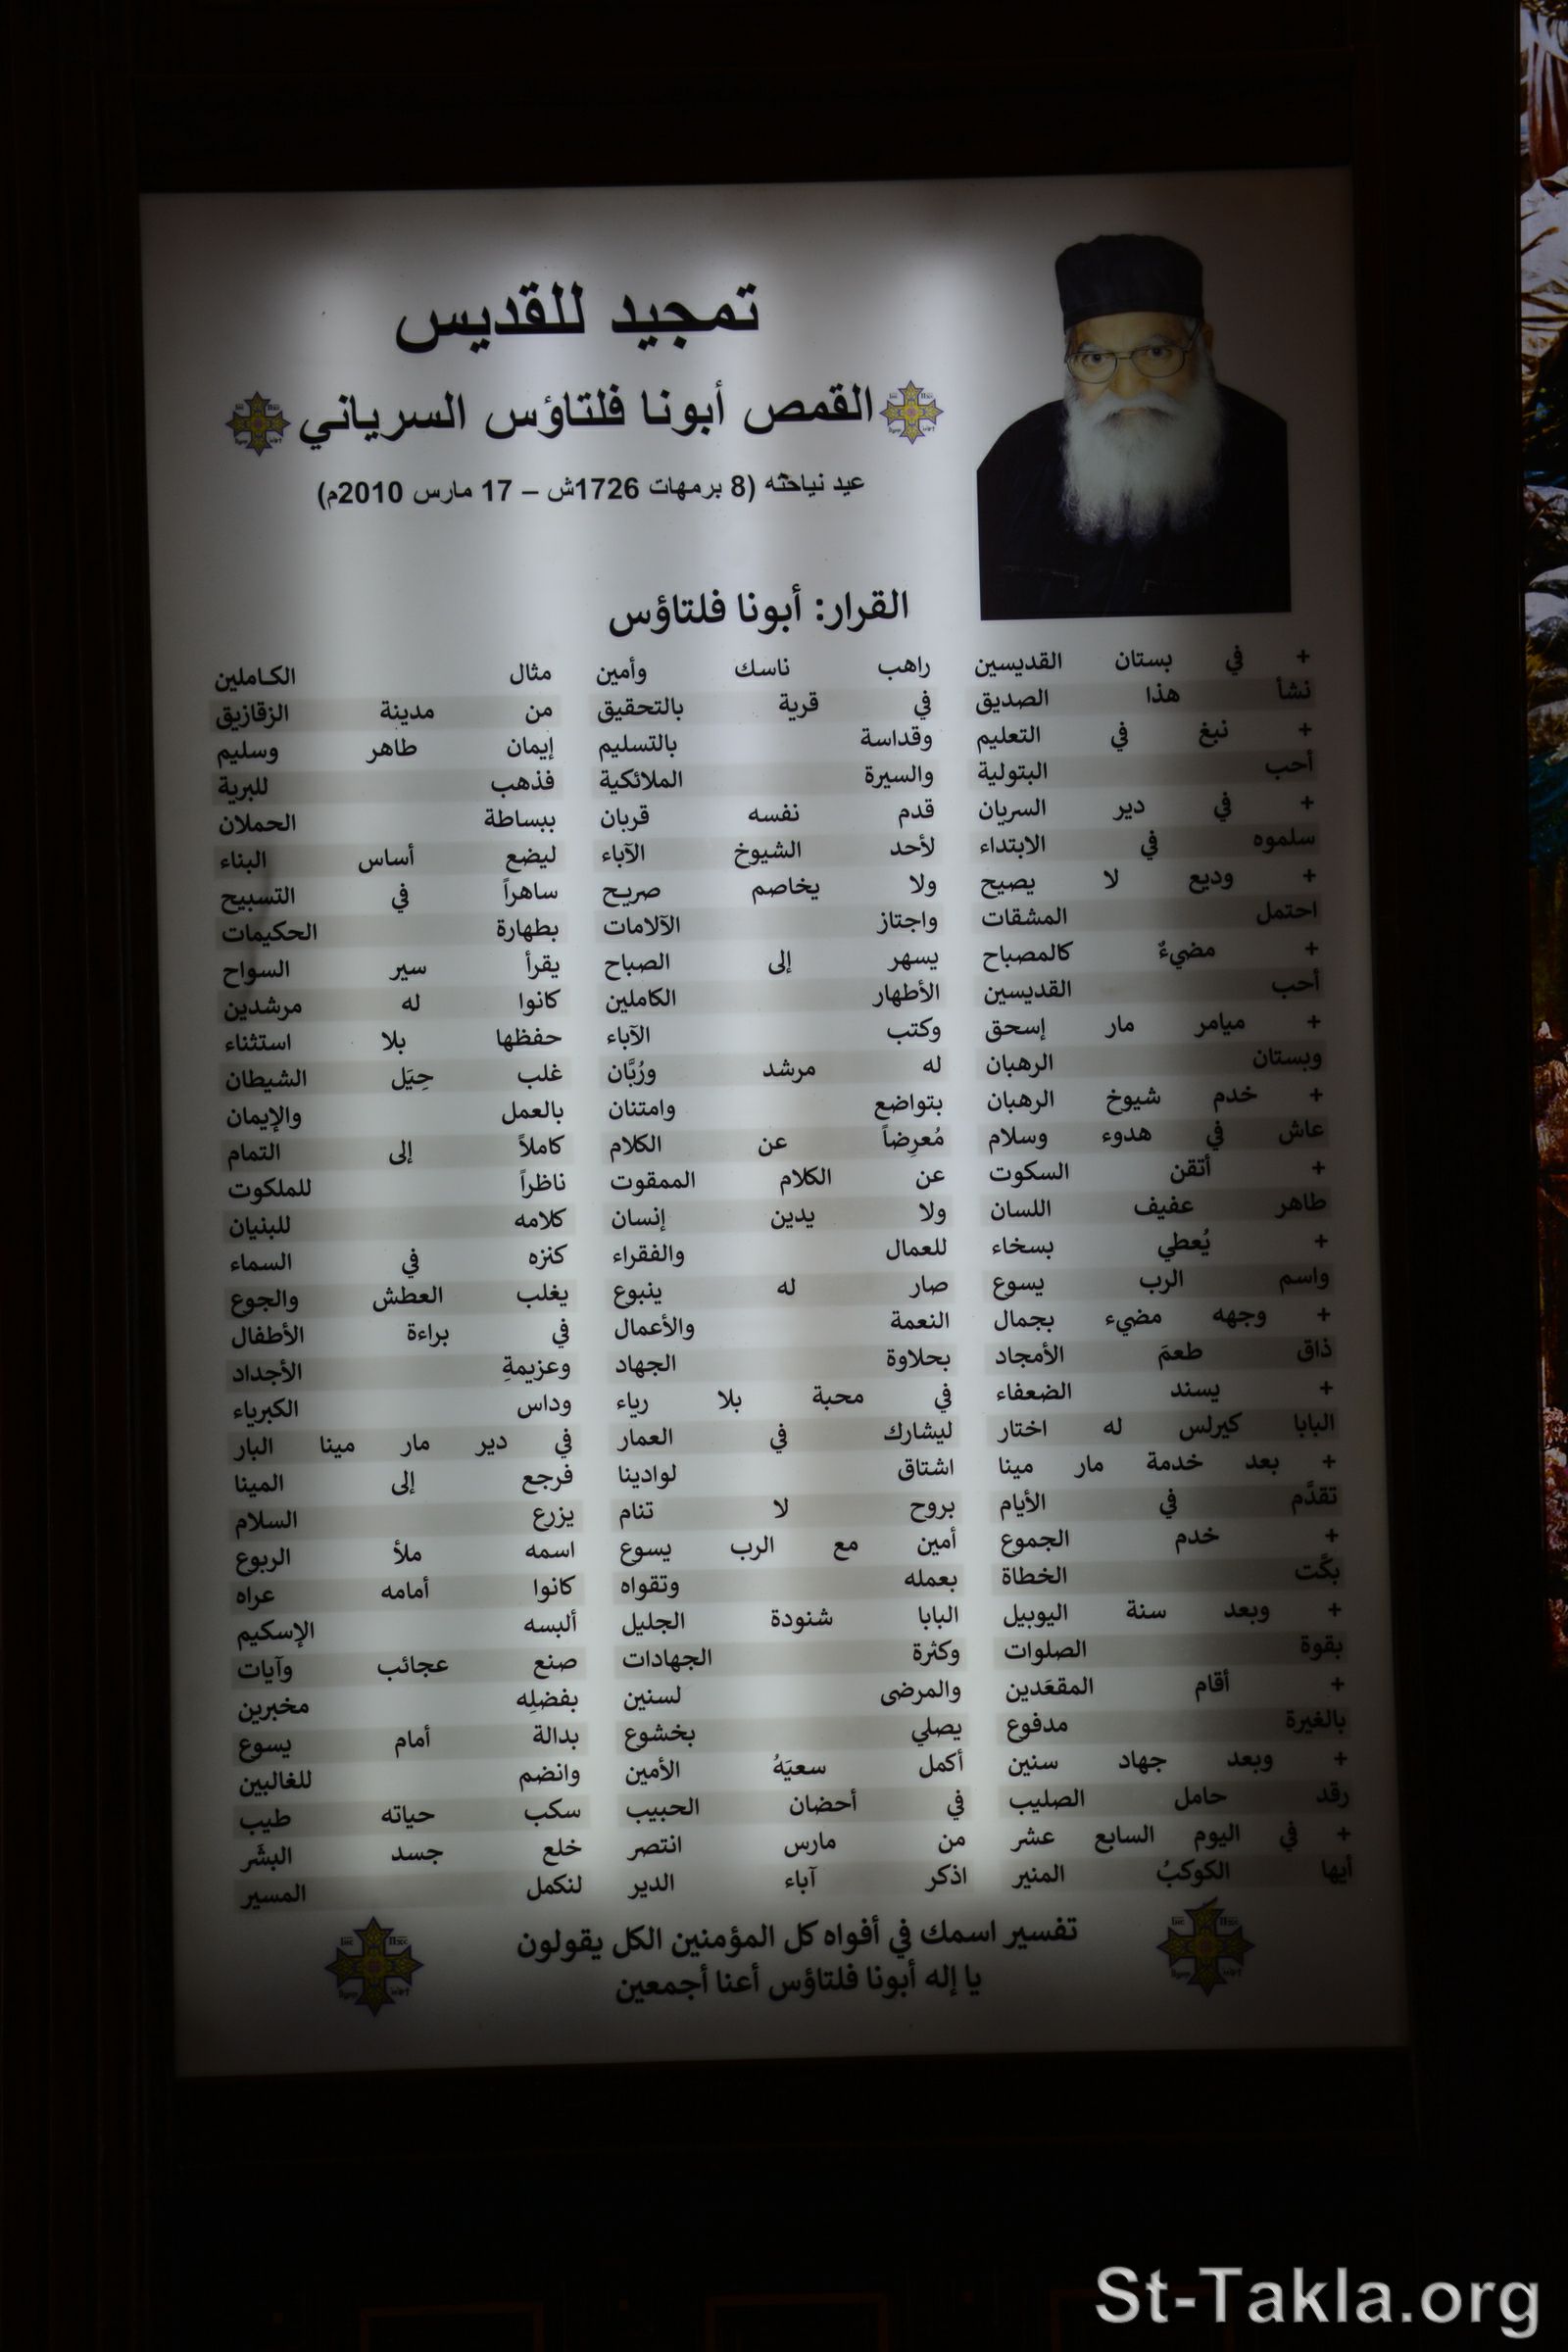 تمجيد للقديس
القمص أبونا فلتاؤس السرياني
عيد نياحته (8 برمهات 1726ش – 17 مارس 2010م)
القرار: أبونا فلتاؤس
+ في بستان القديسين راهب ناسك وأمين مثال الكاملين
نشأ هذا الصديق في قرية بالتحقيق من مدينة الزقازيق
+ نبغ في التعليم وقداسة بالتسليم إيمان طاهر وسليم
أحب البتولية والسيرة الملائكية فذهب للبرية
+ في دير السريان قدم نفسه قربان ببساطة الحملان
سلموه في الابتداء لأحد الشيوخ الآباء ليضع أساس البناء
+ وديع لا يصيح ولا يخاصم صريح ساهراً في التسبيح
احتمل المشقات واجتاز الآلامات بطهارة الحكيمات
+ مضيءٌ كالمصباح يسهر إلى الصباح يقرأ سير السواح
أحب القديسين الأطهار الكاملين كانوا له مرشدين
+ ميامر مار إسحق وكتب الآباء حفظها بلا استثناء
وبستان الرهبان له مرشد ورُبَّان غلب حِيَل الشيطان
+ خدم شيوخ الرهبان بتواضع وامتنان بالعمل والإيمان
عاش في هدوء وسلام مُعرِضاً عن الكلام كاملاً إلى التمام
+ أتقن السكوت عن الكلام الممقوت ناظراً للملكوت
طاهر عفيف اللسان ولا يدين إنسان كلامه للبنيان
+ يُعطي بسخاء للعمال والفقراء كنزه في السماء
واسم الرب يسوع صار له ينبوع يغلب العطش والجوع
+ وجهه مضيء بجمال النعمة والأعمال في براءة الأطفال
ذاق طعمَ الأمجاد بحلاوة الجهاد وعزيمةِ الأجداد
+ يسند الضعفاء في محبة بلا رياء وداس الكبرياء
البابا كيرلس له اختار ليشارك في العمار في دير مار مينا البار
+ بعد خدمة مار مينا اشتاق لوادينا فرجع إلى المينا
تقدَّم في الأيام بروح لا تنام يزرع السلام
+ خدم الجموع أمين مع الرب يسوع اسمه ملأ الربوع
بكَّت الخطاة بعمله وتقواه كانوا أمامه عراه
+ وبعد سنة اليوبيل البابا شنودة الجليل ألبسه الإسكيم
بقوة الصلوات وكثرة الجهادات صنع عجائب وآيات
+ أقام المقعَدين والمرضى لسنين بفضلِه مخبرين
بالغيرة مدفوع يصلي بخشوع بدالة أمام يسوع
+ وبعد جهاد سنين أكمل سعيَهُ الأمين وانضم للغالبين
رقد حامل الصليب في أحضان الحبيب سكب حياته طيب
+ في اليوم السابع عشر من مارس انتصر خلع جسد البشَر
أيها الكوكبُ المنير اذكر آباء الدير لنكمل المسير
تفسير اسمك في أفواه كل المؤمنين الكل يقولون
يا إله أبونا فلتاؤس أعنا أجمعين
St-Takla.org